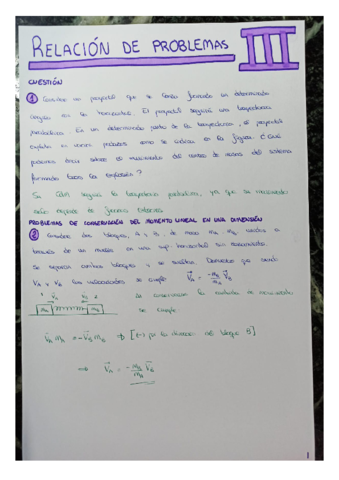 RELACIÓN DE PROBLEMAS III
CUESTIÓN
1 Considere un proyectil que se lanza formando un determinado
ángulo con la horizontal. El proyectil seguirá una trayectoria
parabólica. En un determinado punto de la trayectoria, el proyectil
explota en varios pedazos como se indica en la figura. ¿Qué
podemos decir sobre el movimiento del centro de masas del sistema
formado tras la explosión?
Su CDM seguirá la trayectoria parabólica, ya que su movimiento
sólo depende de fuerzas externas.
PROBLEMAS DE CONSERVACIÓN DEL MOMENTO LINEAL EN UNA DIMENSIÓN
2 Considere dos bloques, A y B, de masa mA y mB, unidos a
través de un muelle en una sup. horizontal sin rozamiento.
Se separan ambos bloques y se sueltan. Demostrar que cuando
VA y VB sus velocidades se cumple
V⃗A = -mB/mA V⃗B
VA VB
mA mB
Se conservan la cantidad de movimiento
se cumple
V⃗A mA = -V⃗B mB → [(-) por la dirección del bloque B]
⇒ V⃗A = -mB/mA V⃗B
1